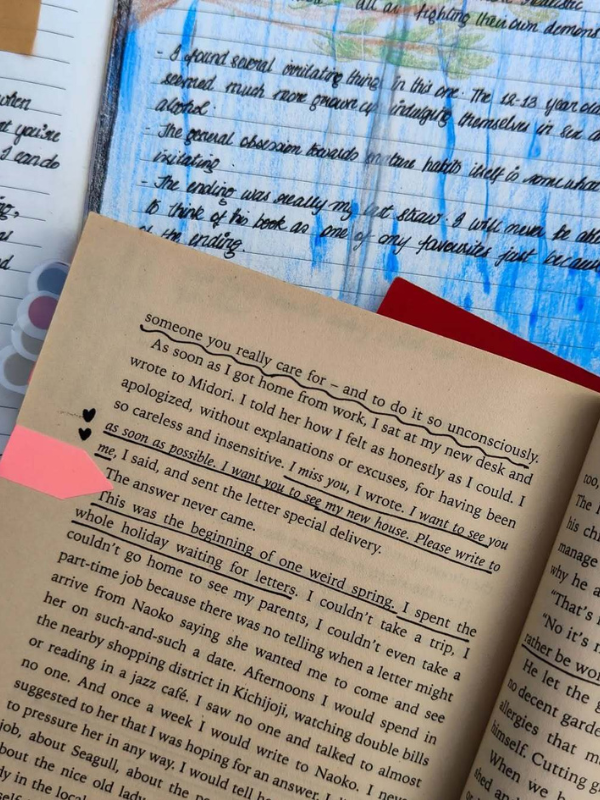 all fighting their own demons
- I found several irritating things in this one. The 12-13 year old
seemed much more grown up indulging themselves in sex a
alcohol.
- The general obsession towards mature habits itself is somewhat
irritating.
- The ending was really my last straw. I will never be able
to think of his book as one of my favourites just because
of the ending.
when
at you're
I can do
someone you really care for – and to do it so unconsciously.
As soon as I got home from work, I sat at my new desk and
wrote to Midori. I told her how I felt as honestly as I could. I
apologized, without explanations or excuses, for having been
so careless and insensitive. I miss you, I wrote. I want to see you
as soon as possible. I want you to see my new house. Please write to
me, I said, and sent the letter special delivery.
The answer never came.
This was the beginning of one weird spring. I spent the
whole holiday waiting for letters. I couldn't take a trip, I
couldn't go home to see my parents, I couldn't even take a
part-time job because there was no telling when a letter might
arrive from Naoko saying she wanted me to come and see
her on such-and-such a date. Afternoons I would spend in
the nearby shopping district in Kichijoji, watching double bills
or reading in a jazz café. I saw no one and talked to almost
no one. And once a week I would write to Naoko. I never
suggested to her that I was hoping for an answer. I
to pressure her in any way. I would tell he
job, about Seagull, about the pe
about the nice old lady
dy in the local
too,
The l
his chi
manage
why he a
"That's
"No it's n
rather be wo
He let the g
no decent garde
allergies that m
himself. Cutting g
When we h
shed an